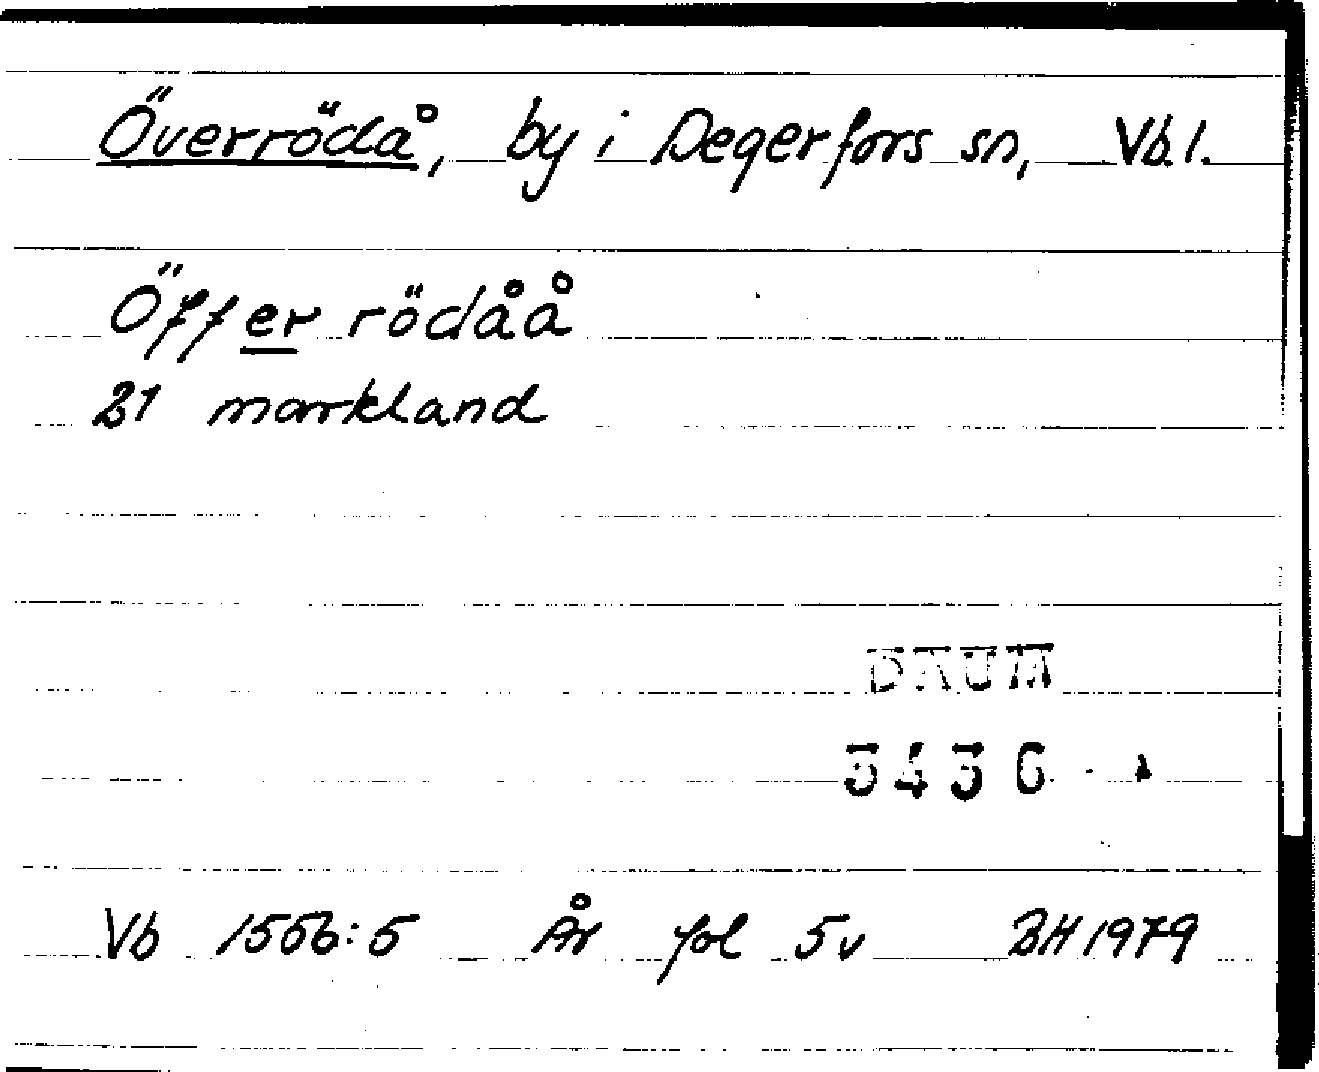 Överrödå, by i Degerfors sn, Vb. l.
Öffer rödåå
21 markland
DAUM
3436
Vb 1556:5 År fol 5v BH 1979